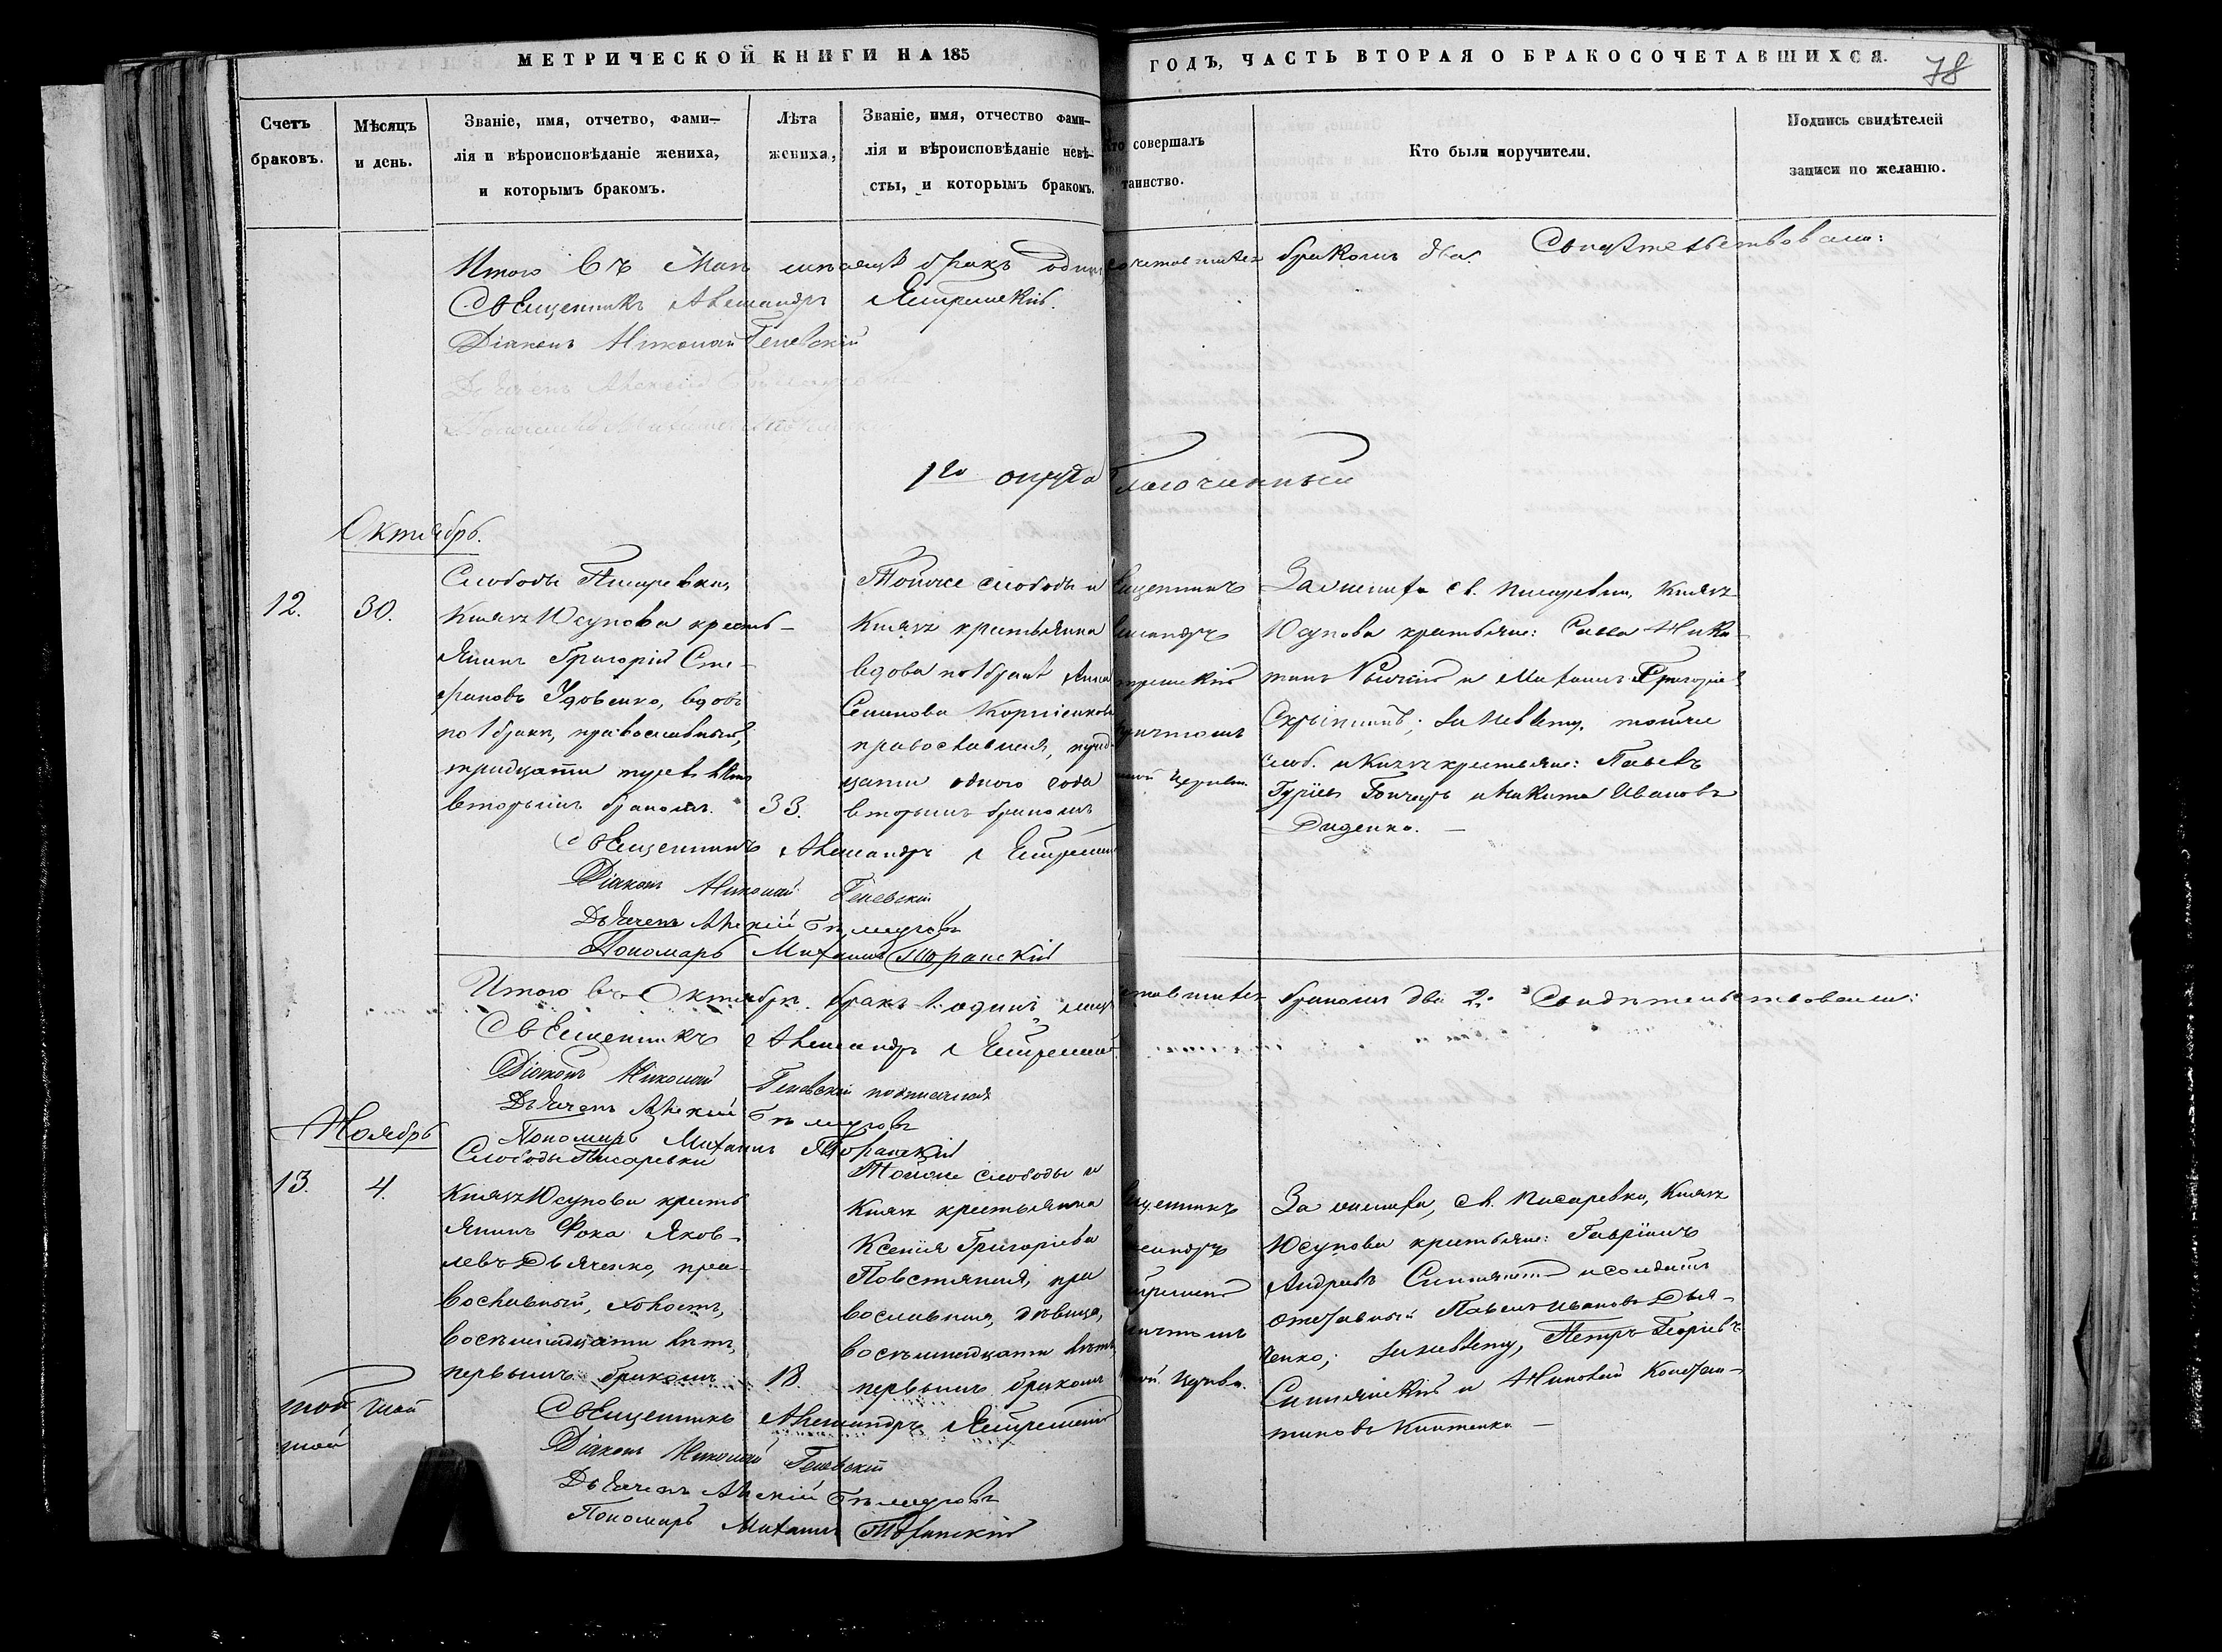 МЕТРИЧЕСКОЙ КНИГИ НА 185
ГОДЪ, ЧАСТЬ ВТОРАЯ О БРАКОСОЧЕТАВШИХСЯ.
78
Счетъ
браковъ.
Мѣсяцъ
и день.
Званіе, имя, отчетво, фами-
лія и вѣроисповѣданіе жениха,
и которымъ бракомъ.
Лѣта
жениха,
Званіе, имя, отчество фами-
лія и вѣроисповѣданіе невѣ-
сты, и которымъ бракомъ.
Кто совершалъ
таинство.
Кто были поручители.
Подпись свидѣтелей
записи по желанію.
Итого въ Маѣ мѣсяцѣ бракъ одинъ
бракомъ два. Свидѣтельствовали:
Священникъ Александръ Ястремскій.
Діаконъ Николай Геневскій
Дьячекъ Алексей
1го округа Благочинный
Октябрь.
12.
30.
Слободы Писаревки,
Князя Юсупова кресть-
янинъ Григорій Сте-
фановъ Удовенко, вдовъ
по 1 бракѣ, православный,
тридцати трехъ лѣтъ
вторымъ бракомъ.
33.
Тойже слободы и
Князя крестьянка
вдова по 1 бракѣ Анна
Семенова Корніенкова
православная, трид-
цати одного года
вторымъ бракомъ
За жениха сл. Писаревки, Князя
Юсупова крестьяне: Савва Ники-
тинъ и Михаилъ Григорьевъ
Скрыпникъ; за невѣсту, тойже
слоб. и Князя крестьяне: Павелъ
Гуріевъ Гончаръ и Никита Ивановъ
Диденко.
Священникъ Александръ Ястремскій
Діаконъ Николай Геневскій
Дьячекъ Алексій
Пономарь Михаилъ Торанскій
Итого въ Октябрѣ бракъ 1. одинъ
бракомъ два 2. Свидѣтельствовали:
Священникъ Александръ Ястремскій
Діаконъ Николай Геневскій подписался
Дьячекъ Алексій
Пономарь Михаилъ Торанскій
Ноябрь
13.
4.
Слободы Писаревки
Князя Юсупова кресть
янинъ Фока Яков-
левъ Дьяченко, пра-
вославный, холостъ,
восемнадцати лѣтъ,
первымъ бракомъ
18.
Тойже слободы и
Князя крестьянка
Ксенія Григоріева
Повстяная, пра
вославная, дѣвица,
восемнадцати лѣтъ,
первымъ бракомъ
За жениха, сл. Писаревки, Князя
Юсупова крестьяне: Гавріилъ
Андреевъ и солдатъ
отставный Павелъ Ивановъ Дья-
ченко; за невѣсту, Петръ Георгіевъ
и Николай Констан-
тиновъ
Священникъ Александръ Ястремскій
Діаконъ Николай Геневскій
Дьячекъ Алексій
Пономарь Михаилъ Торанскій